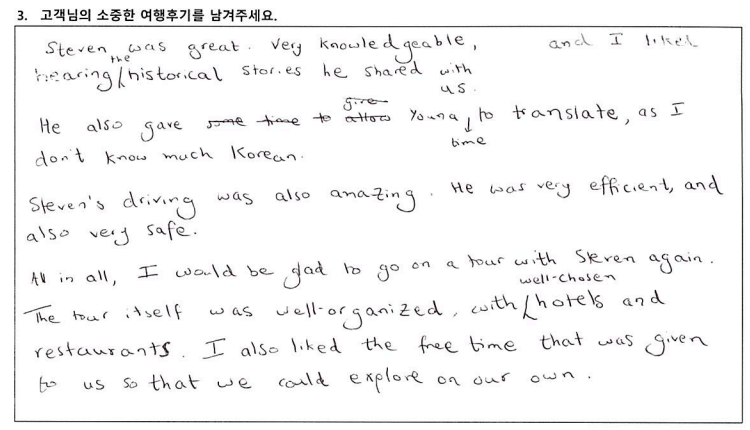 3. 고객님의 소중한 여행후기를 남겨주세요.
Steven was great. Very knowledgeable, and I liked
hearing the historical stories he shared with us.
He also gave some time to allow give Young time to translate, as I
don't know much Korean.
Steven's driving was also amazing. He was very efficient, and
also very safe.
All in all, I would be glad to go on a tour with Steven again.
The tour itself was well-organized, with well-chosen hotels and
restaurants. I also liked the free time that was given
to us so that we could explore on our own.